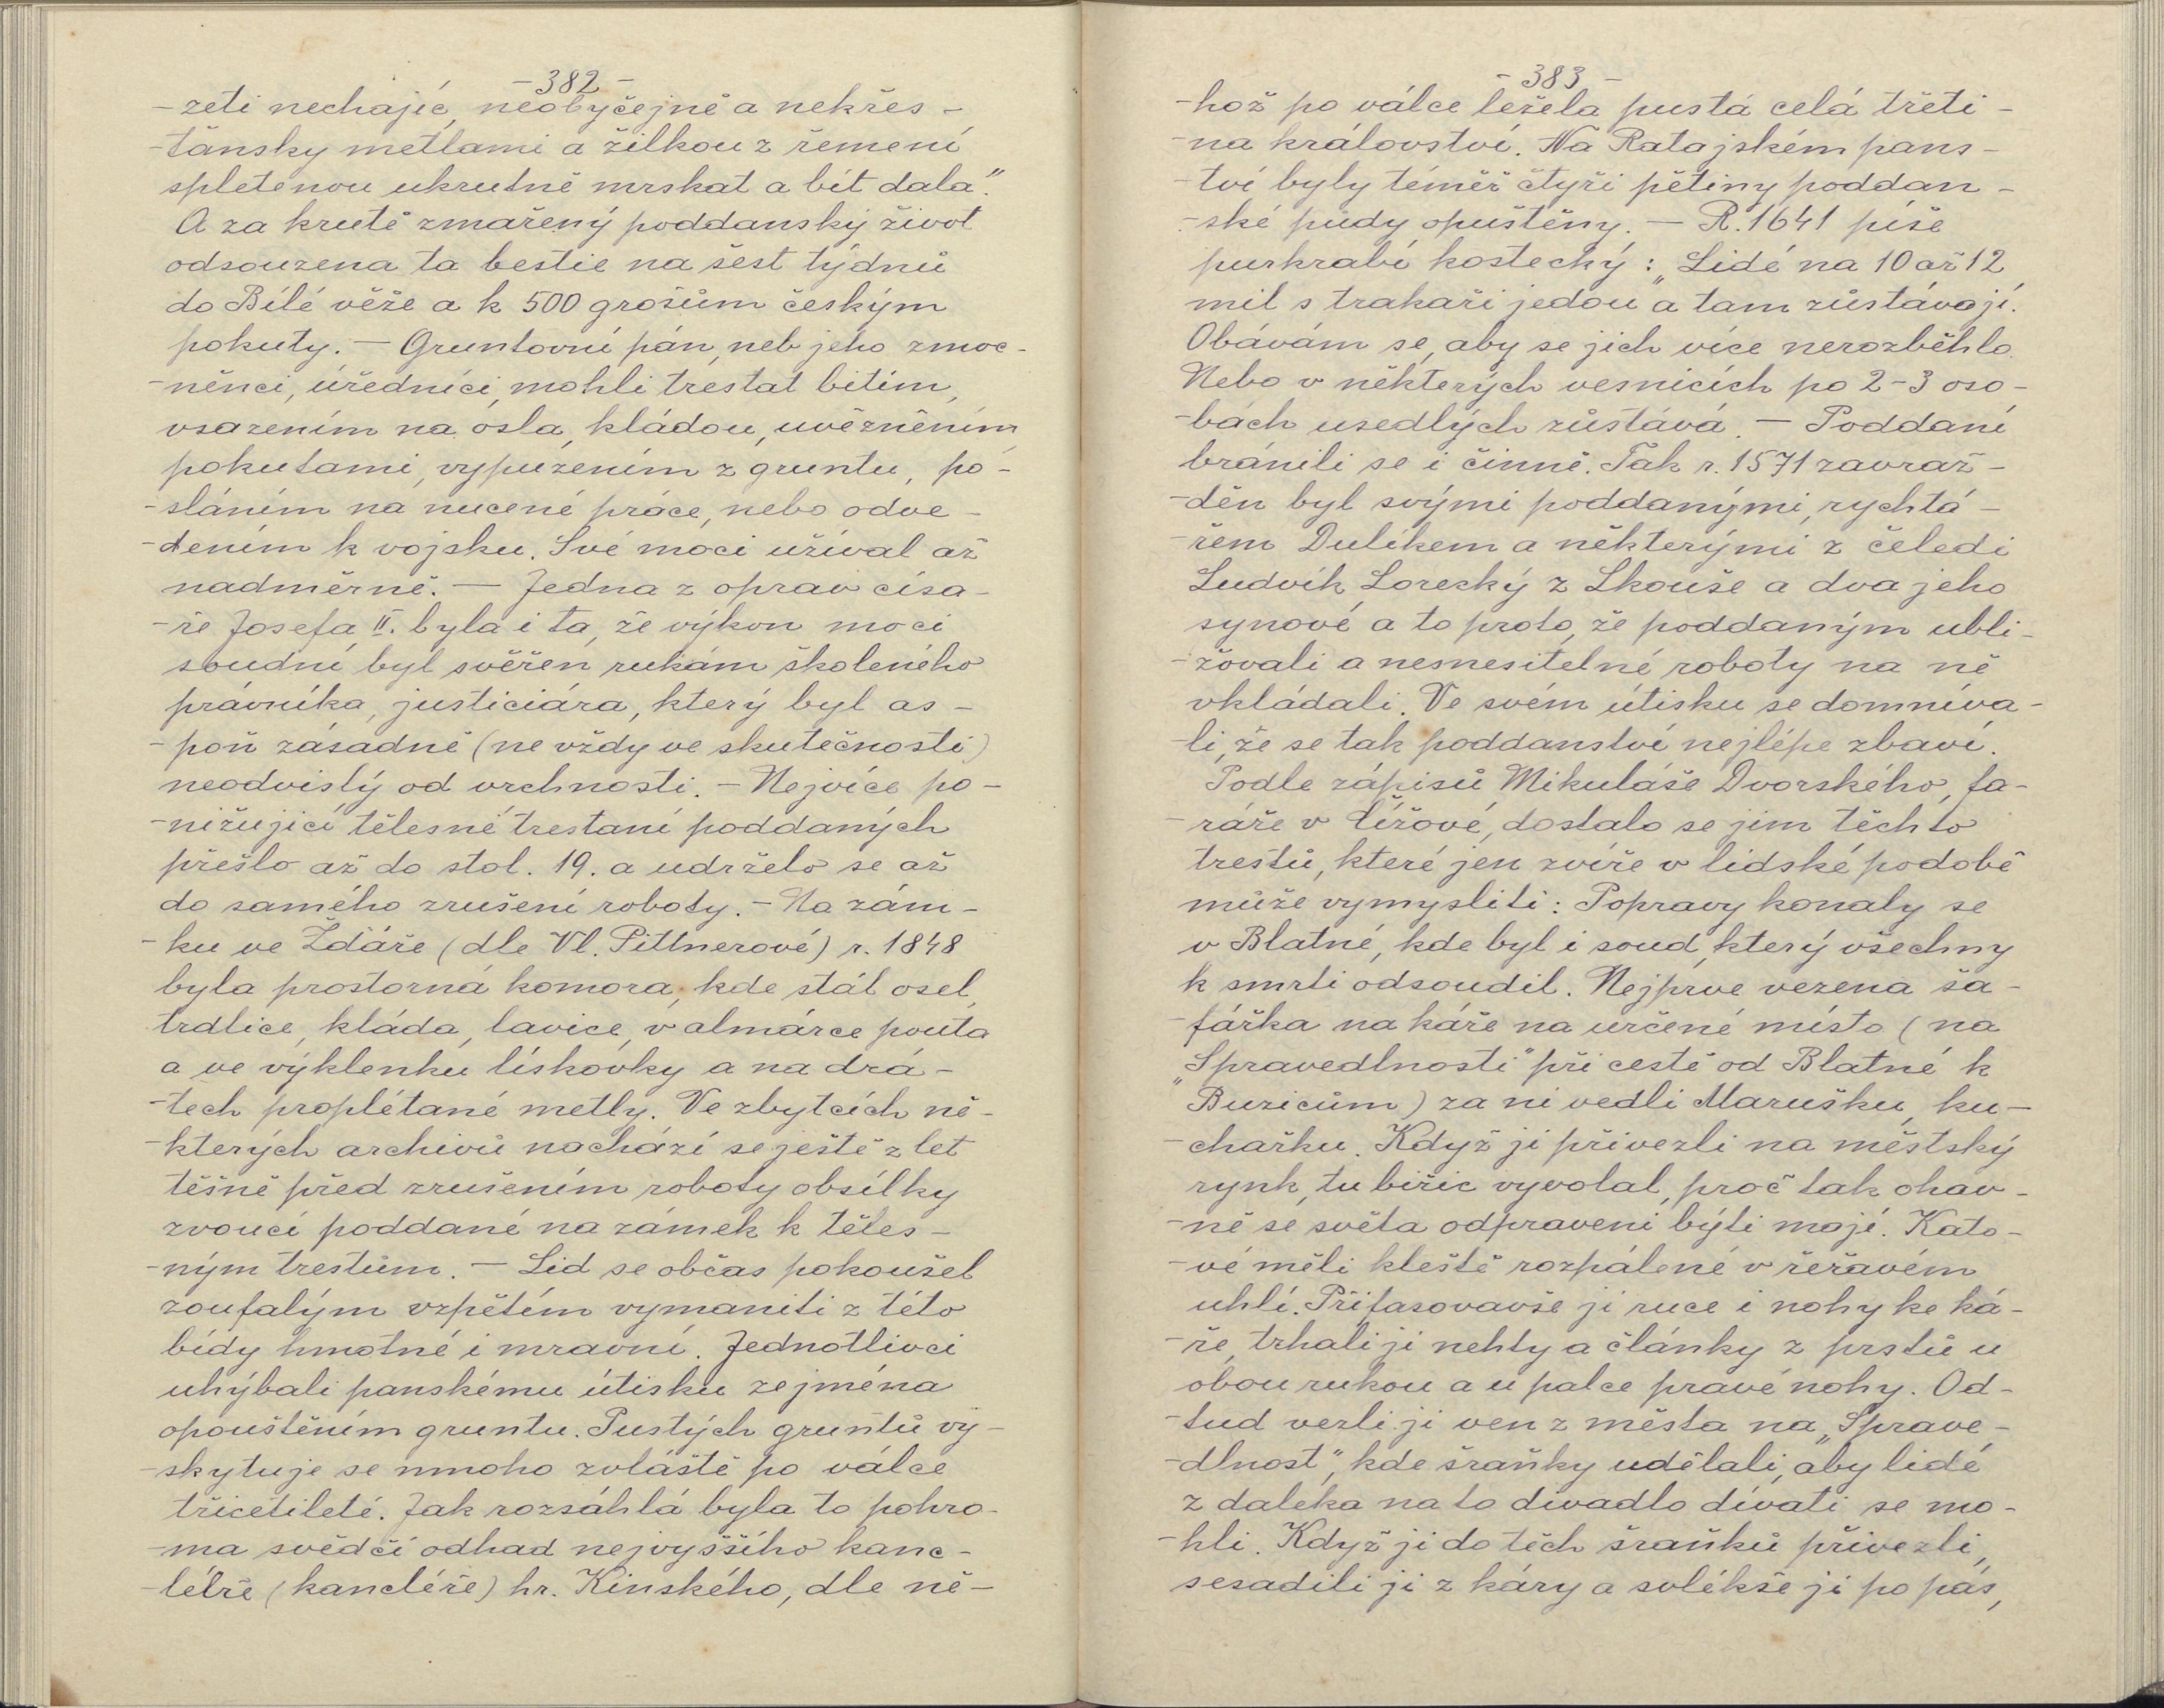 -382-
-zeti nechajíc, neobyčejně a nekřes-
-ťansky metlami a žilkou z řemení
spletenou ukrutně mrskat a bít dala".
A za krutě zmařený poddanský život
odsouzena ta bestie na šest týdnů
do Bílé věže a k 500 grošům českým
pokuty. — Gruntovní pán, neb jeho zmoc-
-něnci, úředníci, mohli trestat bitím,
vsazením na osla, kládou, uvězněním
pokutami, vypuzením z gruntu, po-
-sláním na nucené práce, nebo odve-
-dením k vojsku. Své moci užíval až
nadměrně. — Jedna z oprav císa-
-ře Josefa II. byla i ta, že výkon moci
soudní byl svěřen rukám školeného
právníka, justiciára, který byl as-
-poň zásadně (ne vždy ve skutečnosti)
neodvislý od vrchnosti. - Nejvíce po-
-nižující tělesné trestaní poddaných
přešlo až do stol. 19. a udrželo se až
do samého zrušení roboty. - Na zám-
-ku ve Žďáře (dle Vl. Pittnerové) r. 1848
byla prostorná komora, kde stál osel,
trdlice, kláda, lavice, v almárce pouta
a ve výklenku lískovky a na drá-
-tech proplétané metly. Ve zbytcích ně-
-kterých archivů nachází se ještě z let
těšně před zrušením roboty obsílky
zvoucí poddané na zámek k těles-
-ným trestům. — Lid se občas pokoušel
zoufalým vzpětím vymaniti z této
bídy hmotné i mravní. Jednotlivci
uhýbali panskému útisku zejména
opouštěním gruntu. Pustých gruntů vy-
-skytuje se mnoho zvláště po válce
třicetileté. Jak rozsáhlá byla to pohro-
-ma svědčí odhad nejvyššího kanc-
-léře (kancléře) hr. Kinského, dle ně-
-383-
-hož po válce ležela pustá celá třeti-
-na království. Na Ratajském pans-
-tví byly téměř čtyři pětiny poddan-
-ské půdy opuštěny. — R. 1641 píše
purkrabí kostecký: „Lidé na 10 až 12
mil s trakaři jedou a tam zůstávají.
Obávám se, aby se jich více nerozběhlo.
Nebo v některých vesnicích po 2-3 oso-
-bách usedlých zůstává. — Poddaní
bránili se i činně. Tak r. 1571 zavraž-
-děn byl svými poddanými, rychtá-
-řem Dulíkem a některými z čeledi
Ludvík Lorecký z Lkouše a dva jeho
synové a to proto, že poddaným ubli-
-žovali a nesnesitelné roboty na ně
vkládali. Ve svém útisku se domníva-
-li, že se tak poddanství nejlépe zbaví.
Podle zápisů Mikuláše Dvorského, fa-
-ráře v Lířové, dostalo se jim těchto
trestů, které jen zvíře v lidské podobě
může vymysliti: Popravy konaly se
v Blatné, kde byl i soud, který všechny
k smrti odsoudil. Nejprve vezena ša-
-fářka na káře na určené místo (na
„Spravedlnosti" při cestě od Blatné k
Buzicům) za ni vedli Marušku, ku-
-chařku. Když ji přivezli na městský
rynk, tu biřic vyvolal, proč tak ohav-
-ně se světa odpraveni býti mají. Kato-
-vé měli kleště rozpálené v řeřavém
uhlí. Přifasovavše jí ruce i nohy ke ká-
-ře, trhali jí nehty a články z prstů u
obou rukou a u palce pravé nohy. Od-
-tud vezli ji ven z města na „Sprave-
-dlnost", kde šraňky udělali, aby lidé
z daleka na to divadlo dívati se mo-
-hli. Když ji do těch šraňků přivezli,
sesadili ji z káry a svlékše ji po pás,